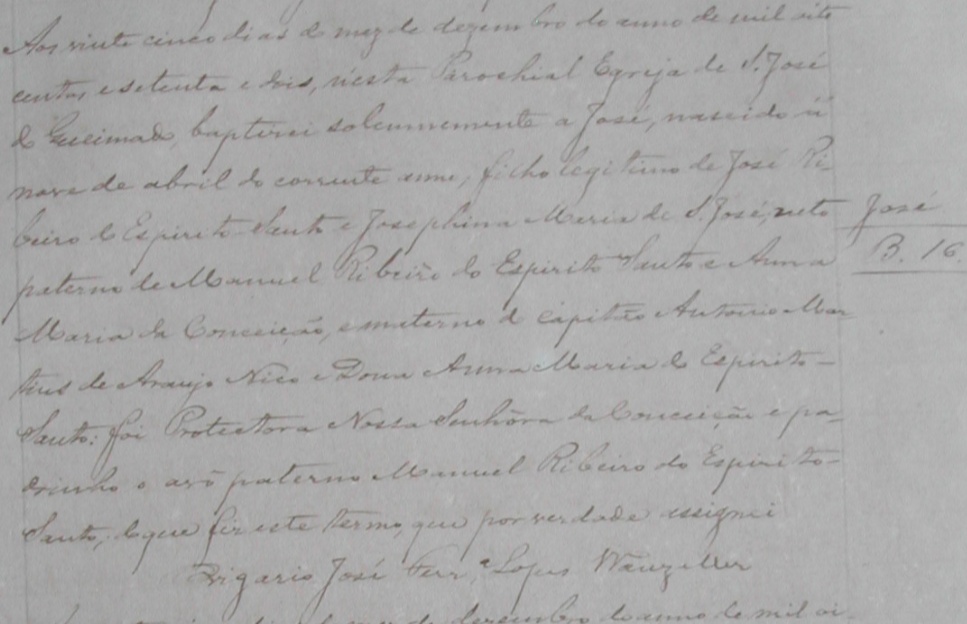 Aos vinte cinco dias do mez de dezembro do anno de mil oito
centos e setenta e dois, n'esta Parochial Egreja de S. José
do Queimado, baptizei solemnemente a José, nascido á
nove de abril do corrente anno, filho legitimo de José Ri-
beiro do Espirito-Santo e Josephina Maria de S. José, neto
paterno de Manuel Ribeiro do Espirito Santo e Anna
Maria da Conceição, e materno do capitão Antonio Mar
tins de Araujo Nico e Dona Anna Maria do Espirito-
Santo: foi Protectora Nossa Senhôra da Conceição e pa-
drinho o avô paterno Manuel Ribeiro do Espirito-
Santo; do que fiz este termo, que por verdade assignei
Vigario José Ferr.ª Lopes Wanzeller
José
B. 16.
dezembro do anno de mil oi-